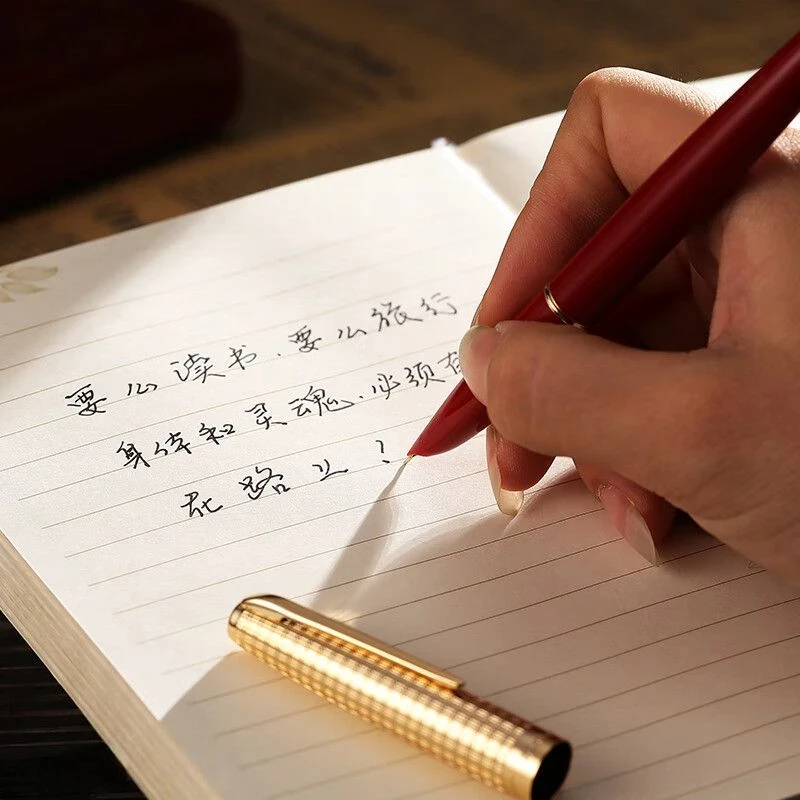 要么读书.要么旅行
身体和灵魂.必须有
在路上?